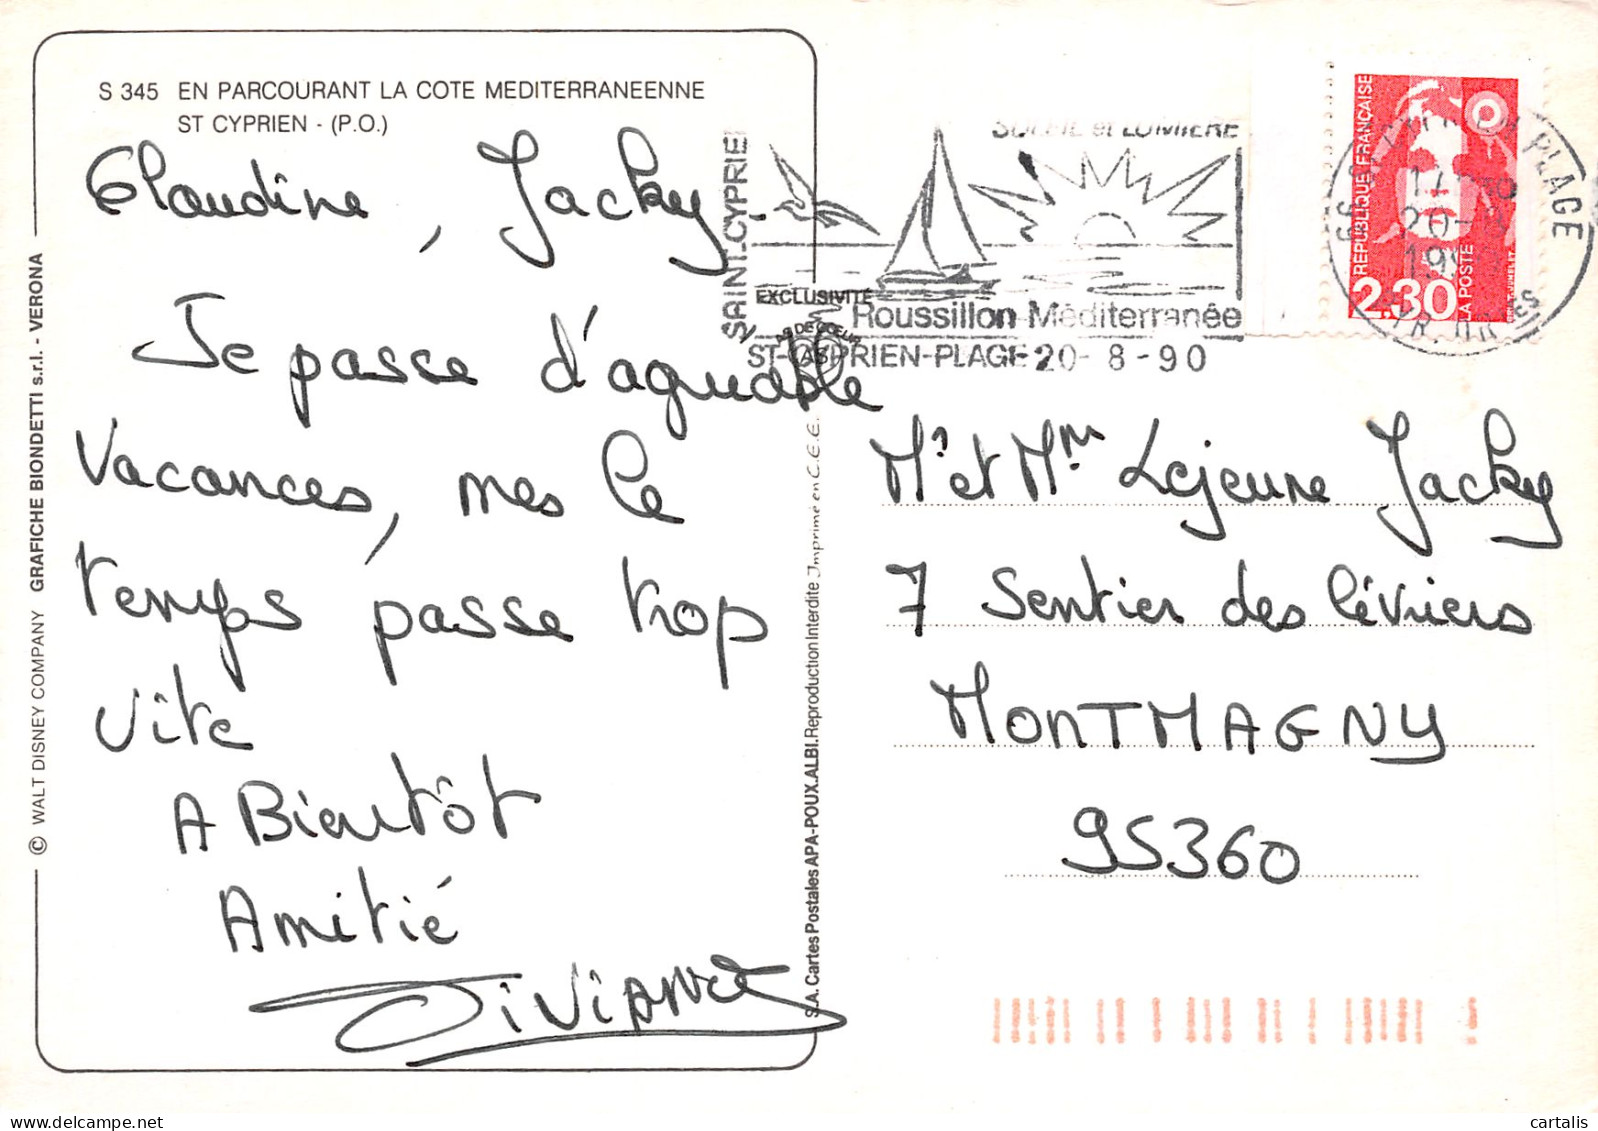 S 345 EN PARCOURANT LA COTE MEDITERRANEENNE
ST CYPRIEN - (P.O.)
Claudine, Jacky
Je passe d'agréable
vacances, mes le
temps passe trop
vite
A Bientôt
Amitié
Viviane
© WALT DISNEY COMPANY GRAFICHE BIONDETTI s.r.l. - VERONA
EXCLUSIVITÉ
AS DE CŒUR
S.A. Cartes Postales APA-POUX.ALBI. Reproduction Interdite Imprimé en C.E.E.
SAINT_CYPRIEN
SOLEIL et LUMIERE
Roussillon Méditerranée
ST-CYPRIEN-PLAGE 20-8-90
REPUBLIQUE FRANÇAISE
2.30
LA POSTE
PLAGE
Mr et Mme Lejeune Jacky
7 Sentier des lévriers
MONTMAGNY
95360
cartalis